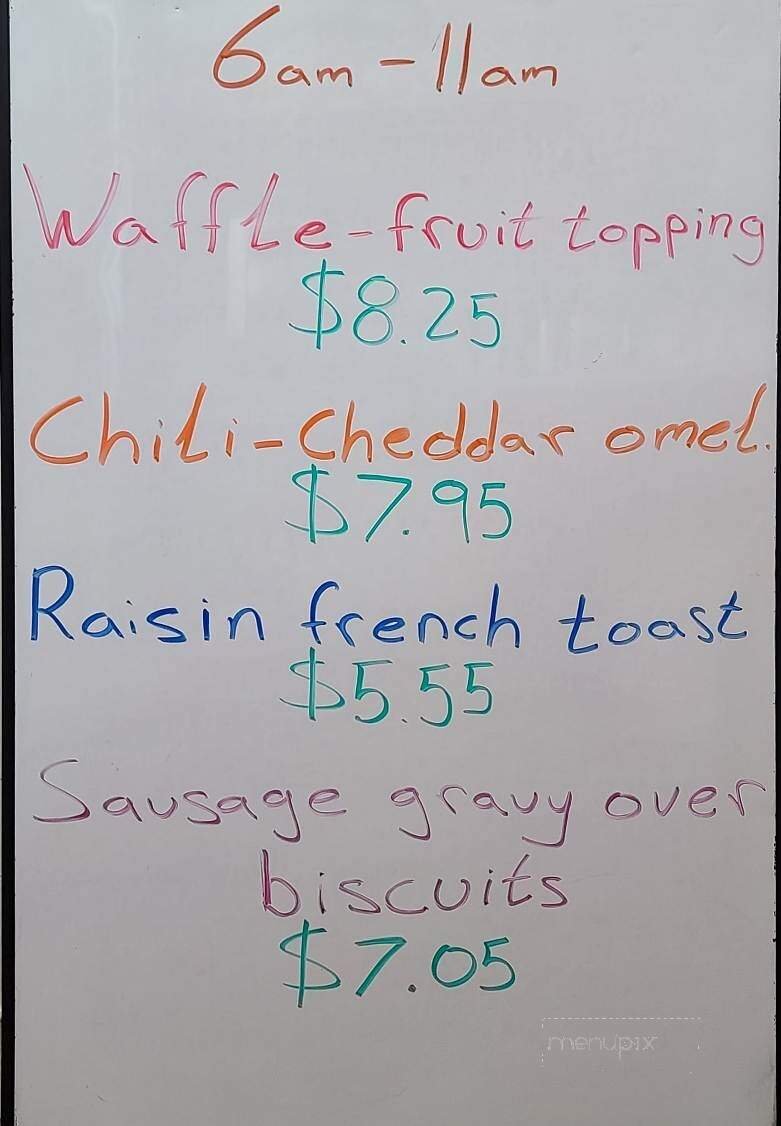 6am - 11am
Waffle-fruit topping
$8.25
Chili-Cheddar omel.
$7.95
Raisin french toast
$5.55
Sausage gravy over
biscuits
$7.05
menupix